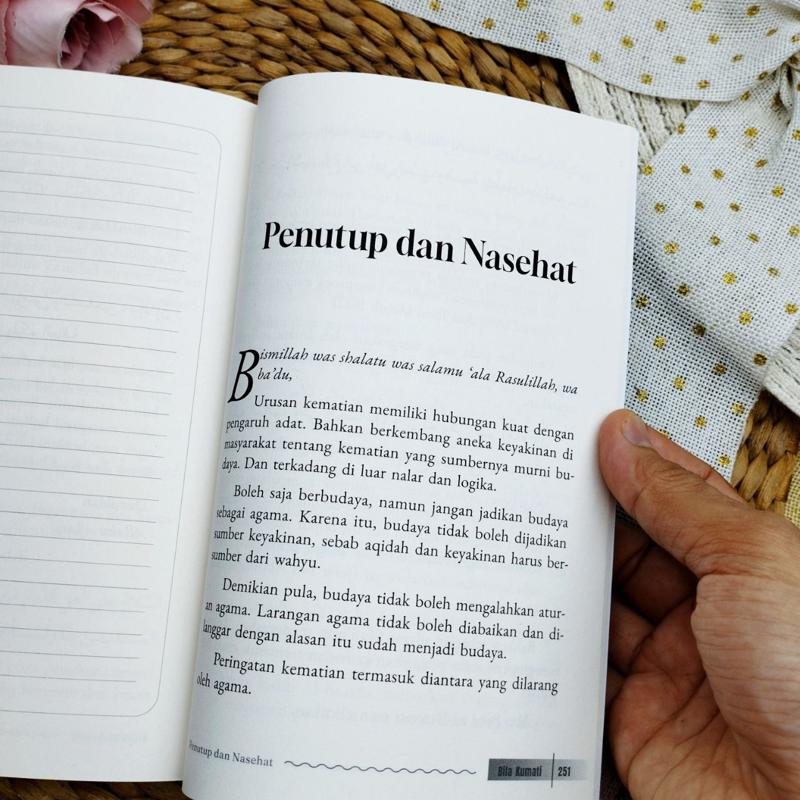 Penutup dan Nasehat
Bismillah was shalatu was salamu ‘ala Rasulillah, wa
ba’du,
Urusan kematian memiliki hubungan kuat dengan
pengaruh adat. Bahkan berkembang aneka keyakinan di
masyarakat tentang kematian yang sumbernya murni bu-
daya. Dan terkadang di luar nalar dan logika.
Boleh saja berbudaya, namun jangan jadikan budaya
sebagai agama. Karena itu, budaya tidak boleh dijadikan
sumber keyakinan, sebab aqidah dan keyakinan harus ber-
sumber dari wahyu.
Demikian pula, budaya tidak boleh mengalahkan atur-
an agama. Larangan agama tidak boleh diabaikan dan di-
langgar dengan alasan itu sudah menjadi budaya.
Peringatan kematian termasuk diantara yang dilarang
oleh agama.
Penutup dan Nasehat Bila Kumati 251